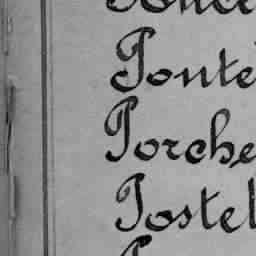 Ponte
Porche
Postel